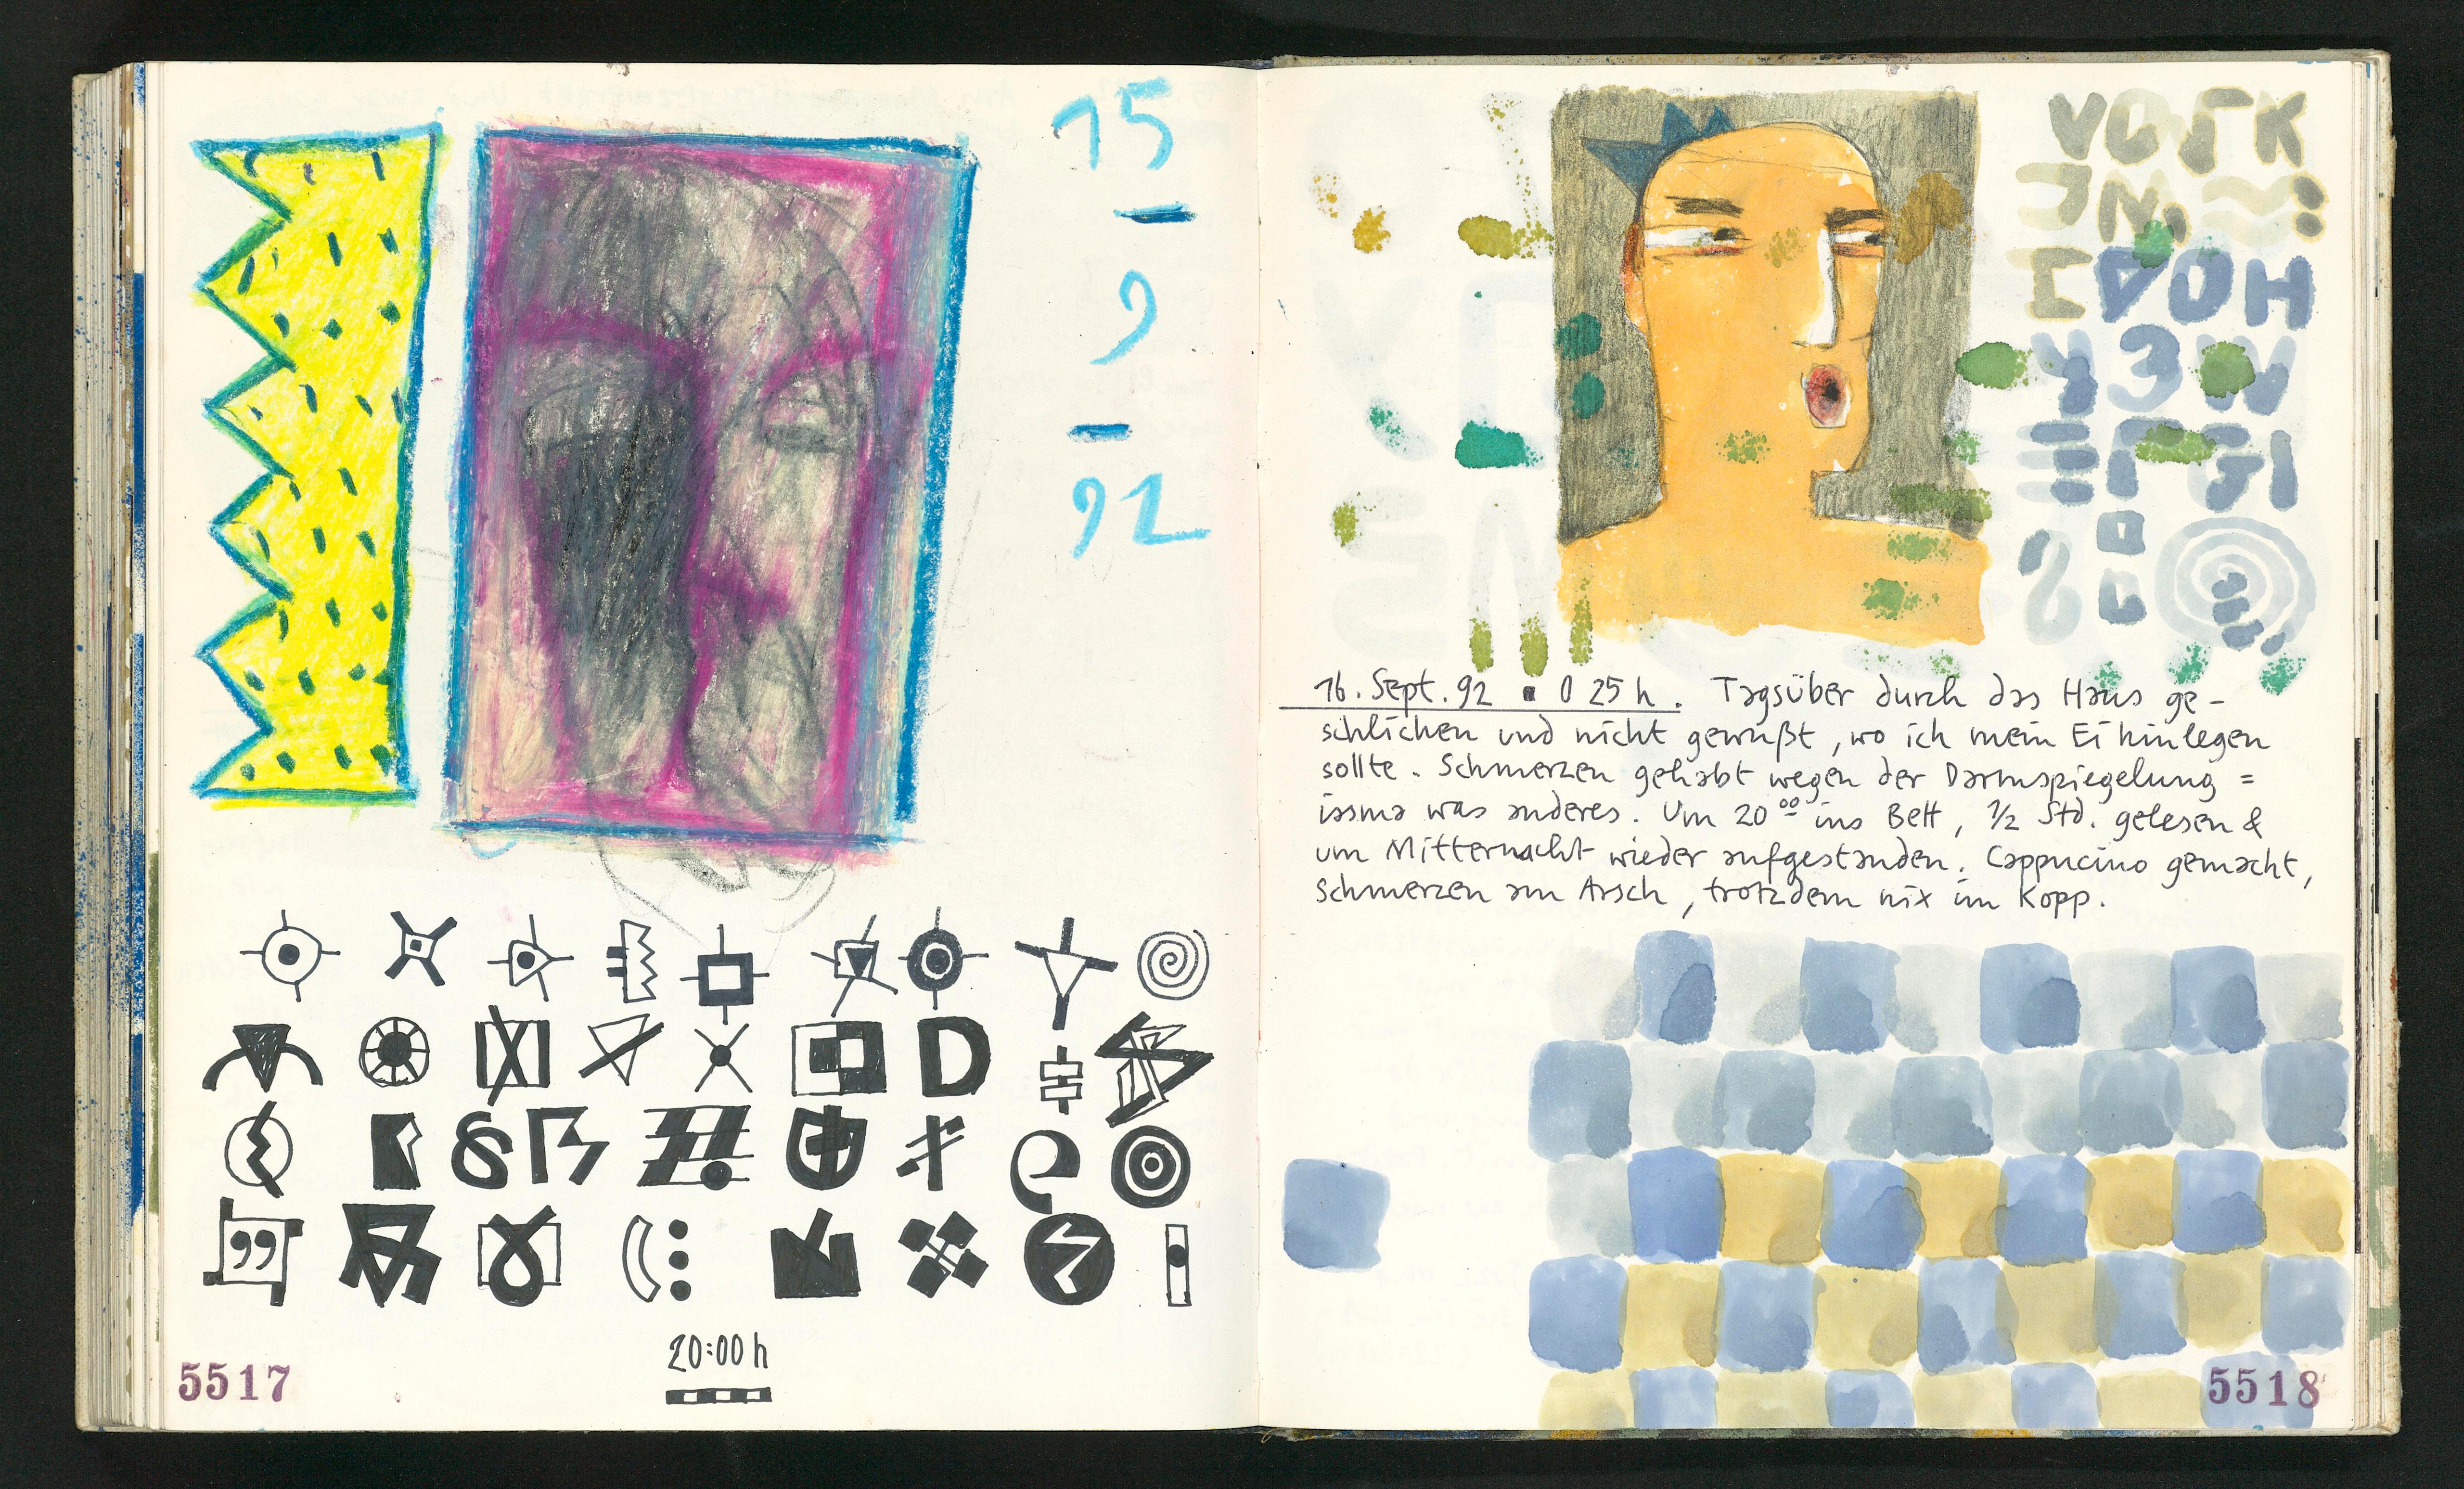 15
-
9
-
92
20:00 h
5517
VOLK
16. Sept. 92 ▪ 0 25 h. Tagsüber durch das Haus ge-
schlichen und nicht gewußt, wo ich mein Ei hinlegen
sollte. Schmerzen gehabt wegen der Darmspiegelung =
issma was anderes. Um 20⁰⁰ ins Bett, ½ Std. gelesen &
um Mitternacht wieder aufgestanden. Cappucino gemacht,
Schmerzen am Arsch, trotzdem nix im Kopp.
5518